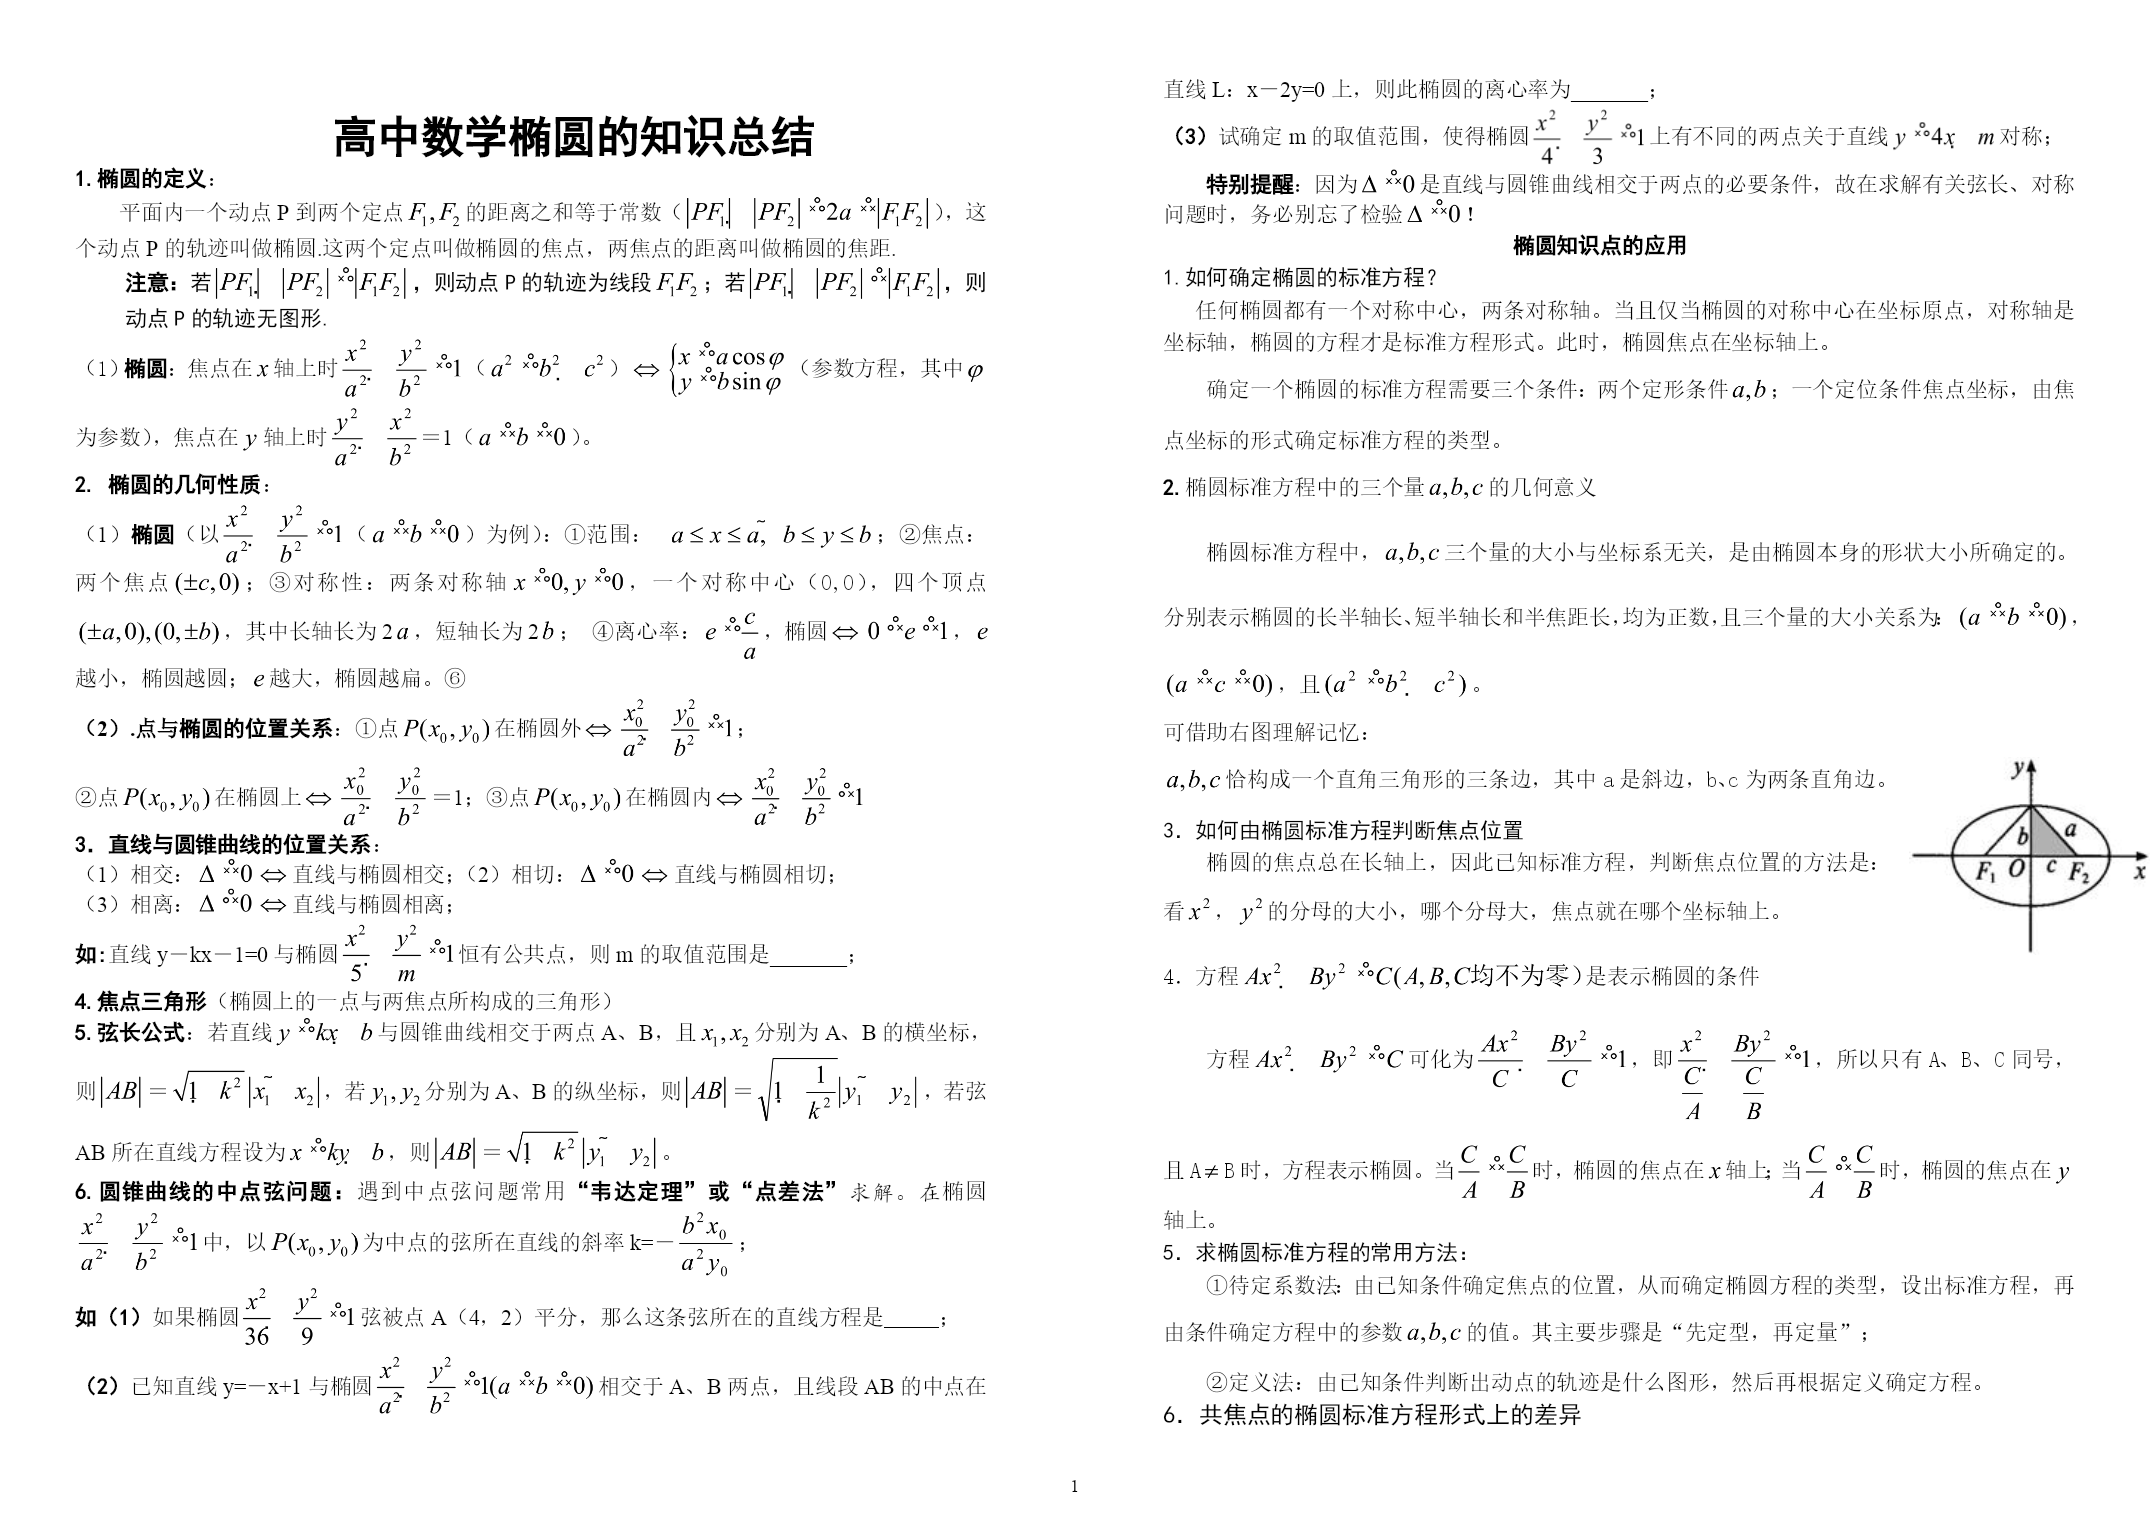 高中数学椭圆的知识总结
1.椭圆的定义：
平面内一个动点 P 到两个定点 F₁,F₂ 的距离之和等于常数（|PF₁| |PF₂| 2a |F₁F₂|），这
个动点 P 的轨迹叫做椭圆.这两个定点叫做椭圆的焦点，两焦点的距离叫做椭圆的焦距.
注意：若|PF₁| |PF₂| |F₁F₂|，则动点 P 的轨迹为线段 F₁F₂；若|PF₁| |PF₂| |F₁F₂|，则
动点 P 的轨迹无图形.
（1）椭圆：焦点在 x 轴上时 x²/a² y²/b² 1（a² b² c²）⇔ { x a cosφ  y b sinφ（参数方程，其中 φ
为参数），焦点在 y 轴上时 y²/a² x²/b² ＝1（a b 0）。
2. 椭圆的几何性质：
（1）椭圆（以 x²/a² y²/b² 1（a b 0）为例）：①范围： a≤x≤a, b≤y≤b；②焦点：
两个焦点(±c,0)；③对称性：两条对称轴 x 0,y 0，一个对称中心（0,0），四个顶点
(±a,0),(0,±b)，其中长轴长为 2a，短轴长为 2b； ④离心率：e c/a，椭圆⇔ 0 e 1，e
越小，椭圆越圆；e 越大，椭圆越扁。⑥
（2）.点与椭圆的位置关系：①点 P(x₀,y₀) 在椭圆外⇔ x₀²/a² y₀²/b² 1；
②点 P(x₀,y₀) 在椭圆上⇔ x₀²/a² y₀²/b² ＝1；③点 P(x₀,y₀) 在椭圆内⇔ x₀²/a² y₀²/b² 1
3．直线与圆锥曲线的位置关系：
（1）相交：Δ 0 ⇔ 直线与椭圆相交；（2）相切：Δ 0 ⇔ 直线与椭圆相切；
（3）相离：Δ 0 ⇔ 直线与椭圆相离；
如:直线 y－kx－1=0 与椭圆 x²/5 y²/m 1恒有公共点，则 m 的取值范围是_______；
4.焦点三角形（椭圆上的一点与两焦点所构成的三角形）
5.弦长公式：若直线 y kx b 与圆锥曲线相交于两点 A、B，且 x₁,x₂ 分别为 A、B 的横坐标，
则|AB|＝√(1 k²)|x₁ x₂|，若 y₁,y₂ 分别为 A、B 的纵坐标，则|AB|＝√(1 1/k²)|y₁ y₂|，若弦
AB 所在直线方程设为 x ky b，则|AB|＝√(1 k²)|y₁ y₂|。
6.圆锥曲线的中点弦问题：遇到中点弦问题常用“韦达定理”或“点差法”求解。在椭圆
x²/a² y²/b² 1中，以 P(x₀,y₀) 为中点的弦所在直线的斜率 k=－b²x₀/a²y₀；
如（1）如果椭圆 x²/36 y²/9 1弦被点 A（4，2）平分，那么这条弦所在的直线方程是_____；
（2）已知直线 y=－x+1 与椭圆 x²/a² y²/b² 1(a b 0)相交于 A、B 两点，且线段 AB 的中点在
直线 L：x－2y=0 上，则此椭圆的离心率为_______；
（3）试确定 m 的取值范围，使得椭圆 x²/4 y²/3 1上有不同的两点关于直线 y 4x m 对称；
特别提醒：因为 Δ 0 是直线与圆锥曲线相交于两点的必要条件，故在求解有关弦长、对称
问题时，务必别忘了检验 Δ 0！
椭圆知识点的应用
1.如何确定椭圆的标准方程？
任何椭圆都有一个对称中心，两条对称轴。当且仅当椭圆的对称中心在坐标原点，对称轴是
坐标轴，椭圆的方程才是标准方程形式。此时，椭圆焦点在坐标轴上。
确定一个椭圆的标准方程需要三个条件：两个定形条件 a,b；一个定位条件焦点坐标，由焦
点坐标的形式确定标准方程的类型。
2.椭圆标准方程中的三个量 a,b,c 的几何意义
椭圆标准方程中，a,b,c 三个量的大小与坐标系无关，是由椭圆本身的形状大小所确定的。
分别表示椭圆的长半轴长、短半轴长和半焦距长，均为正数，且三个量的大小关系为：(a b 0)，
(a c 0)，且(a² b² c²)。
可借助右图理解记忆：
a,b,c 恰构成一个直角三角形的三条边，其中 a 是斜边，b、c 为两条直角边。
y
b a
F₁ O c F₂ x
3．如何由椭圆标准方程判断焦点位置
椭圆的焦点总在长轴上，因此已知标准方程，判断焦点位置的方法是：
看 x²，y² 的分母的大小，哪个分母大，焦点就在哪个坐标轴上。
4．方程 Ax² By² C(A,B,C均不为零)是表示椭圆的条件
方程 Ax² By² C 可化为 Ax²/C By²/C 1，即 x²/(C/A) By²/(C/B) 1，所以只有 A、B、C 同号，
且 A≠B 时，方程表示椭圆。当 C/A C/B 时，椭圆的焦点在 x 轴上；当 C/A C/B 时，椭圆的焦点在 y
轴上。
5．求椭圆标准方程的常用方法：
①待定系数法：由已知条件确定焦点的位置，从而确定椭圆方程的类型，设出标准方程，再
由条件确定方程中的参数 a,b,c 的值。其主要步骤是“先定型，再定量”；
②定义法：由已知条件判断出动点的轨迹是什么图形，然后再根据定义确定方程。
6．共焦点的椭圆标准方程形式上的差异
1